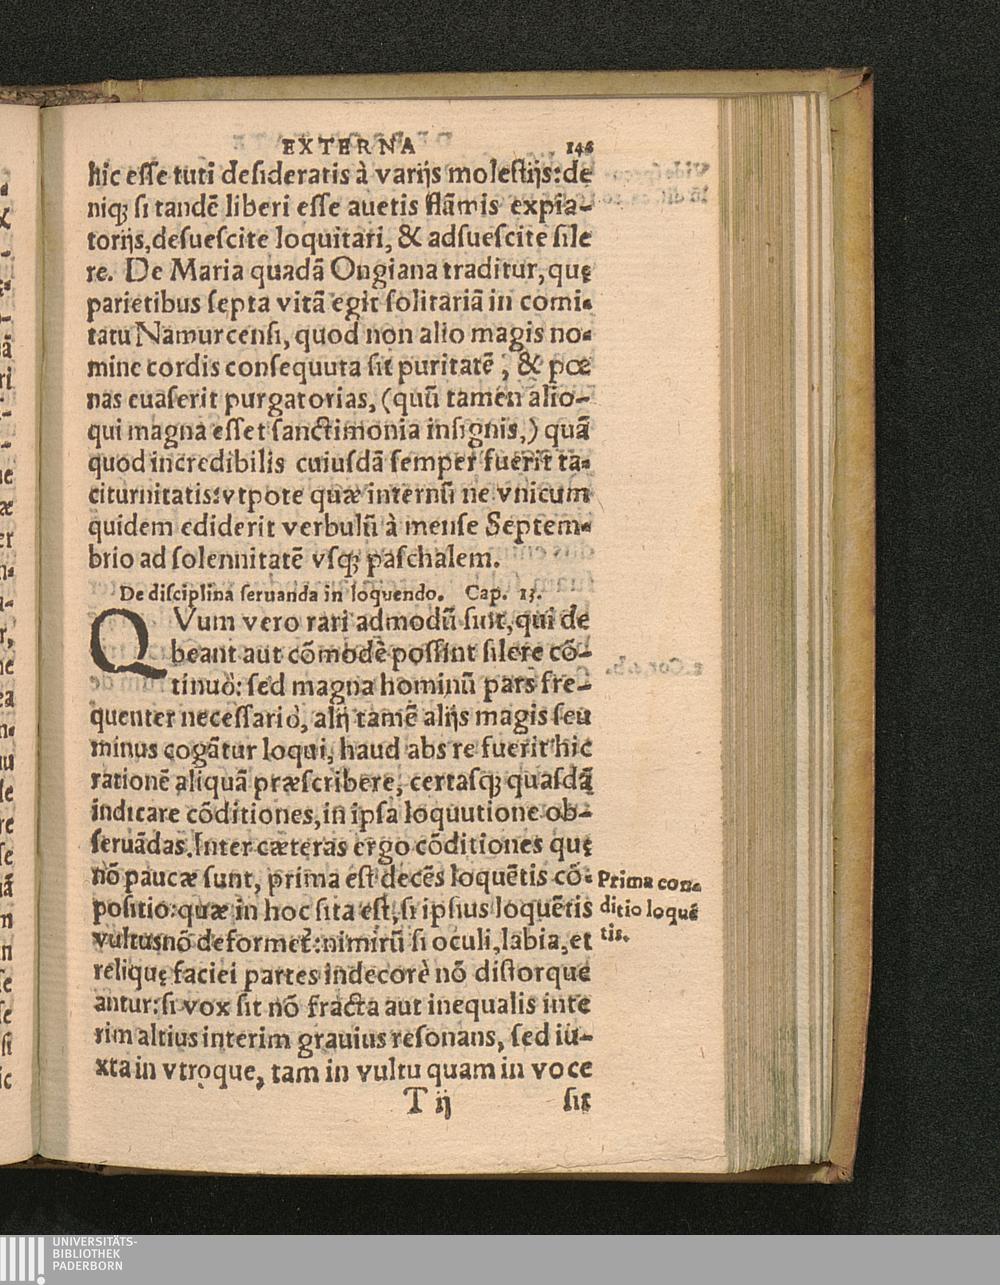 EXTERNA 146
hic eſſe tuti deſideratis à varijs moleſtijs: de
niqꝫ ſi tandē liberi eſſe auetis flāmis expia-
torijs, deſueſcite loquitari, & adſueſcite ſile
re. De Maria quadā Ongiana traditur, quę
parietibus ſepta vitā egit ſolitariā in comi-
tatu Namurcenſi, quod non alio magis no-
mine cordis conſequuta ſit puritatē, & pœ
nas euaſerit purgatorias, (quū tamen alio-
qui magna eſſet ſanctimonia inſignis,) quā
quod incredibilis cuiuſdā ſemper fuerit ta-
citurnitatis: vtpote quæ internū ne vnicum
quidem ediderit verbulū à menſe Septem-
brio ad ſolennitatē vſqꝫ paſchalem.
De diſciplina ſeruanda in loquendo. Cap. 13.
QVum vero rari admodū ſint, qui de
beant aut cōmodè poſſint ſilere cō-
tinuò: ſed magna hominū pars fre-
quenter neceſſariò, alij tamē alijs magis ſeu
minus cogātur loqui, haud abs re fuerit hic
rationē aliquā præſcribere, certaſqꝫ quaſdā
indicare cōditiones, in ipſa loquutione ob-
ſeruādas. Inter cæteras ergo cōditiones quę
nō paucæ ſunt, prima eſt decēs loquētis cō-
poſitio: quæ in hoc ſita eſt, ſi ipſius loquētis
vultus nō deformet᷑: nimirū ſi oculi, labia, et
reliquę faciei partes indecorè nō diſtorque
antur: ſi vox ſit nō fracta aut inequalis inte
rim altius interim grauius reſonans, ſed iu-
xta in vtroque, tam in vultu quam in voce
T ij ſit
Prima con-
ditio loquē
tis.
UNIVERSITÄTS-
BIBLIOTHEK
PADERBORN